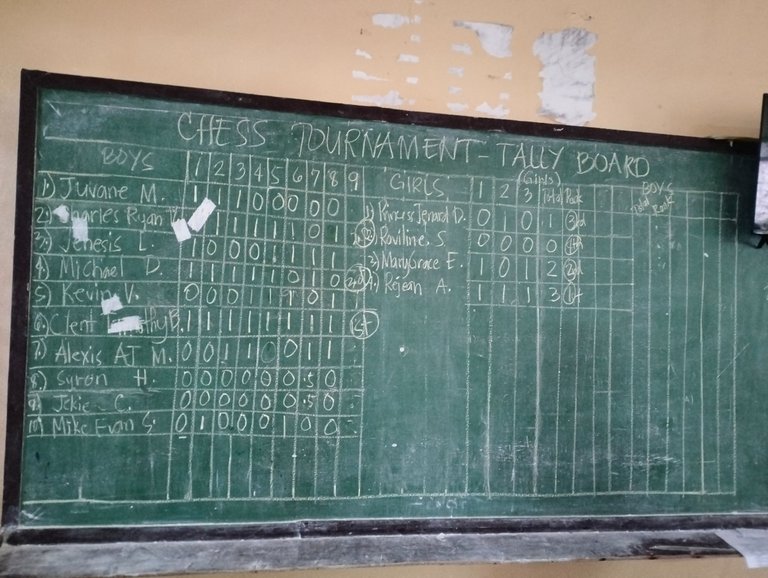 CHESS TOURNAMENT - TALLY BOARD
BOYS 1 2 3 4 5 6 7 8 9
1.) Juvane M. 1 1 1 0 0 0 0 0
2.) harles Ryan
3.) Jenesis L. 1 0 0 0 1 1 1 1
4.) Michael D. 1 1 1 1 1 0 1 0 2nd
5.) Kevin V. 0 0 0 1 1 1 0 1
6.) Clent thy B. 1 1 1 1 1 1 1 1 1st
7.) Alexis AJ M. 0 0 1 1 0 0 1 1
8.) Syron H. 0 0 0 0 0 0 .5 0
9.) Jckie C. 0 0 0 0 0 0 .5 0
10.) Mike Evan S. 0 1 0 0 0 1 0 0
GIRLS 1 2 3 (Girls) Total Rank
1.) Princess Jenard D. 0 1 0 1 3rd
2.) Raviline S. 0 0 0 0 4th
3.) MaryGrace E. 1 0 1 2 2nd
4.) Rejean A. 1 1 1 3 1st
BOYS
Total Rank